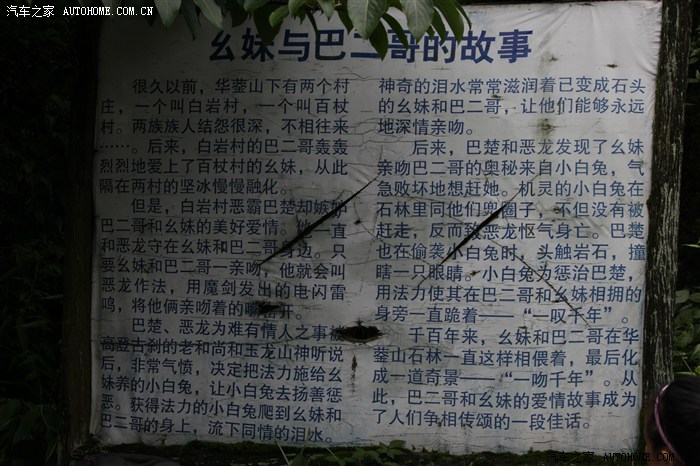 汽车之家 AUTOHOME.COM.CN
幺妹与巴二哥的故事
很久以前，华蓥山下有两个村
庄，一个叫白岩村，一个叫百杖
村。两族族人结怨很深，不相往来
……。后来，白岩村的巴二哥轰轰
烈烈地爱上了百杖村的幺妹，从此
隔在两村的坚冰慢慢融化。
但是，白岩村恶霸巴楚却嫉妒
巴二哥和幺妹的美好爱情。他一直
和恶龙守在幺妹和巴二哥身边。只
要幺妹和巴二哥一亲吻，他就会叫
恶龙作法，用魔剑发出的电闪雷
鸣，将他俩亲吻着的嘴 开。
巴楚、恶龙为难有情人之事被
高登古刹的老和尚和玉龙山神听说
后，非常气愤，决定把法力施给幺
妹养的小白兔，让小白兔去扬善惩
恶。获得法力的小白兔爬到幺妹和
巴二哥的身上，流下同情的泪水。
神奇的泪水常常滋润着已变成石头
的幺妹和巴二哥，让他们能够永远
地深情亲吻。
后来，巴楚和恶龙发现了幺妹
亲吻巴二哥的奥秘来自小白兔，气
急败坏地想赶她。机灵的小白兔在
石林里同他们兜圈子，不但没有被
赶走，反而致恶龙怄气身亡。巴楚
也在偷袭小白兔时，头触岩石，撞
瞎一只眼睛。小白兔为惩治巴楚，
用法力使其在巴二哥和幺妹相拥的
身旁一直跪着——“一叹千年”。
千百年来，幺妹和巴二哥在华
蓥山石林一直这样相偎着，最后化
成一道奇景——“一吻千年”。从
此，巴二哥和幺妹的爱情故事成为
了人们争相传颂的一段佳话。
汽车之家 AUTOHOME.COM.CN